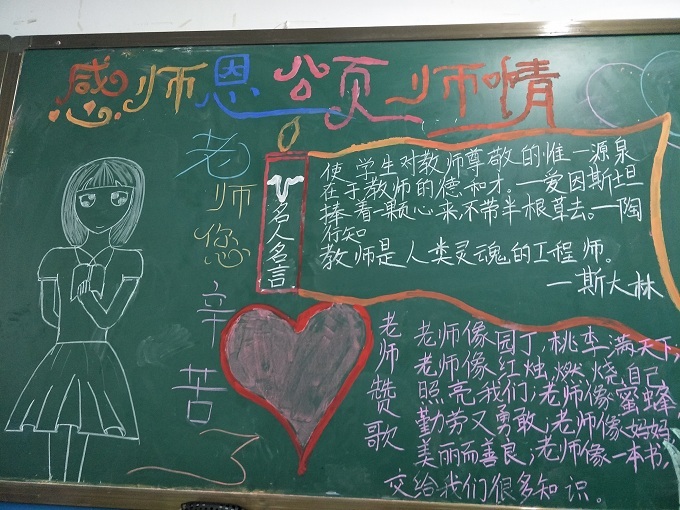 感师恩颂师情
老师您辛苦了
名人名言
使学生对教师尊敬的惟一源泉
在于教师的德和才。—爱因斯坦
捧着一颗心来,不带半根草去。—陶
行知
教师是人类灵魂的工程师。
—斯大林
老师赞歌
老师像园丁,桃李满天下;
老师像红烛,燃烧自己
照亮我们;老师像蜜蜂
勤劳又勇敢;老师像妈妈
美丽而善良;老师像一本书,
交给我们很多知识。